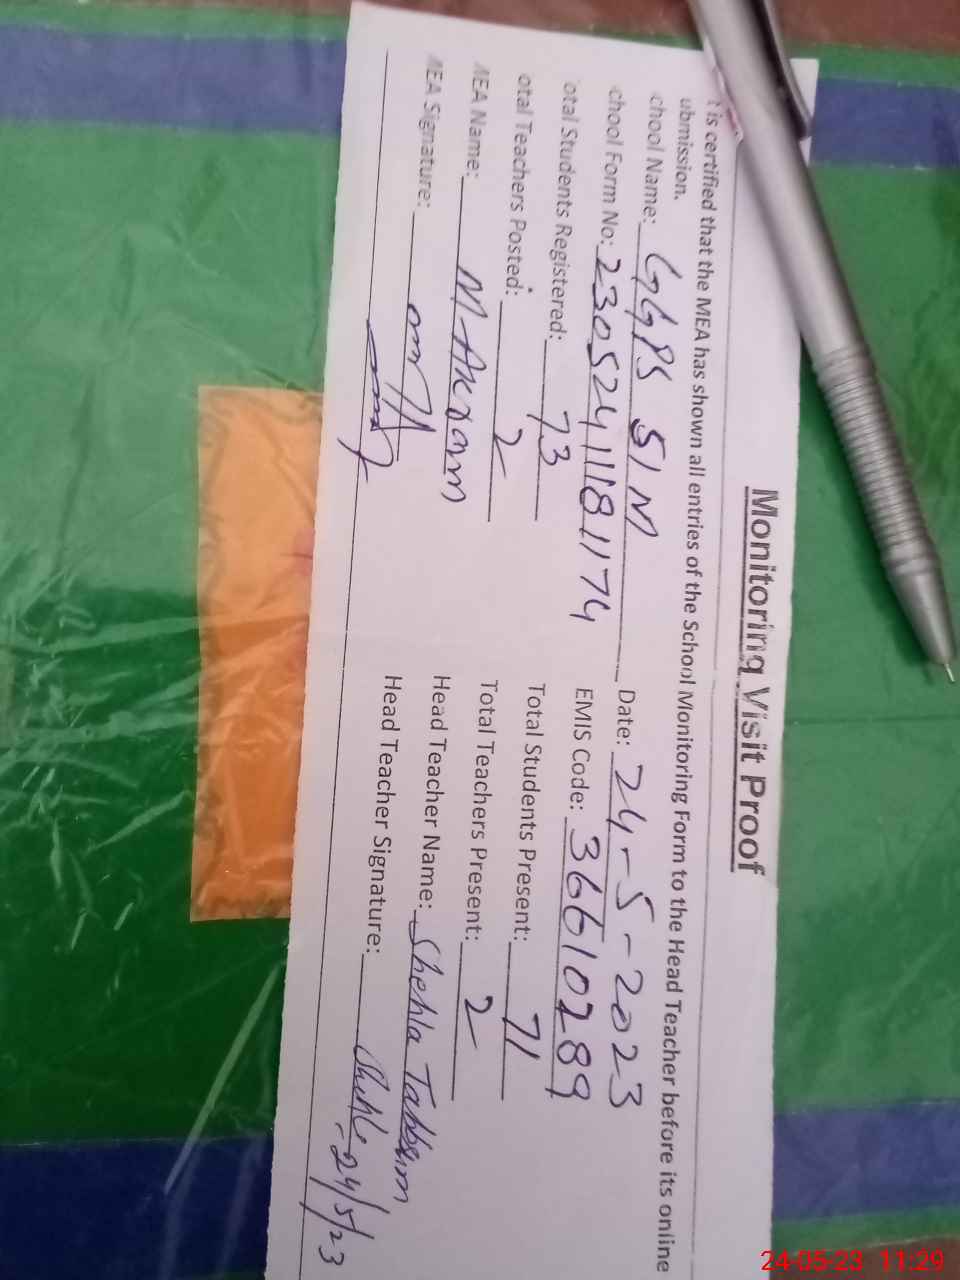 Monitoring Visit Proof
t is certified that the MEA has shown all entries of the School Monitoring Form to the Head Teacher before its online
ubmission.
chool Name: GGPS 51 M Date: 24-5-2023
chool Form No: 230524111811174 EMIS Code: 36610289
otal Students Registered: 73 Total Students Present: 71
otal Teachers Posted: 2 Total Teachers Present: 2
MEA Name: M Akram Head Teacher Name: Shehla Tabbsm
MEA Signature: Head Teacher Signature: Shehla 24/5/23
24-05-23 11:29